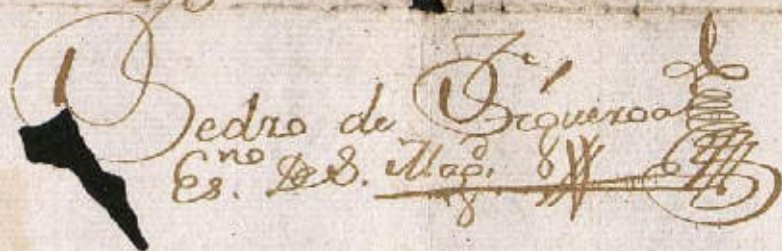 Pedro de Figueroa
Es.no De S. Mag.d